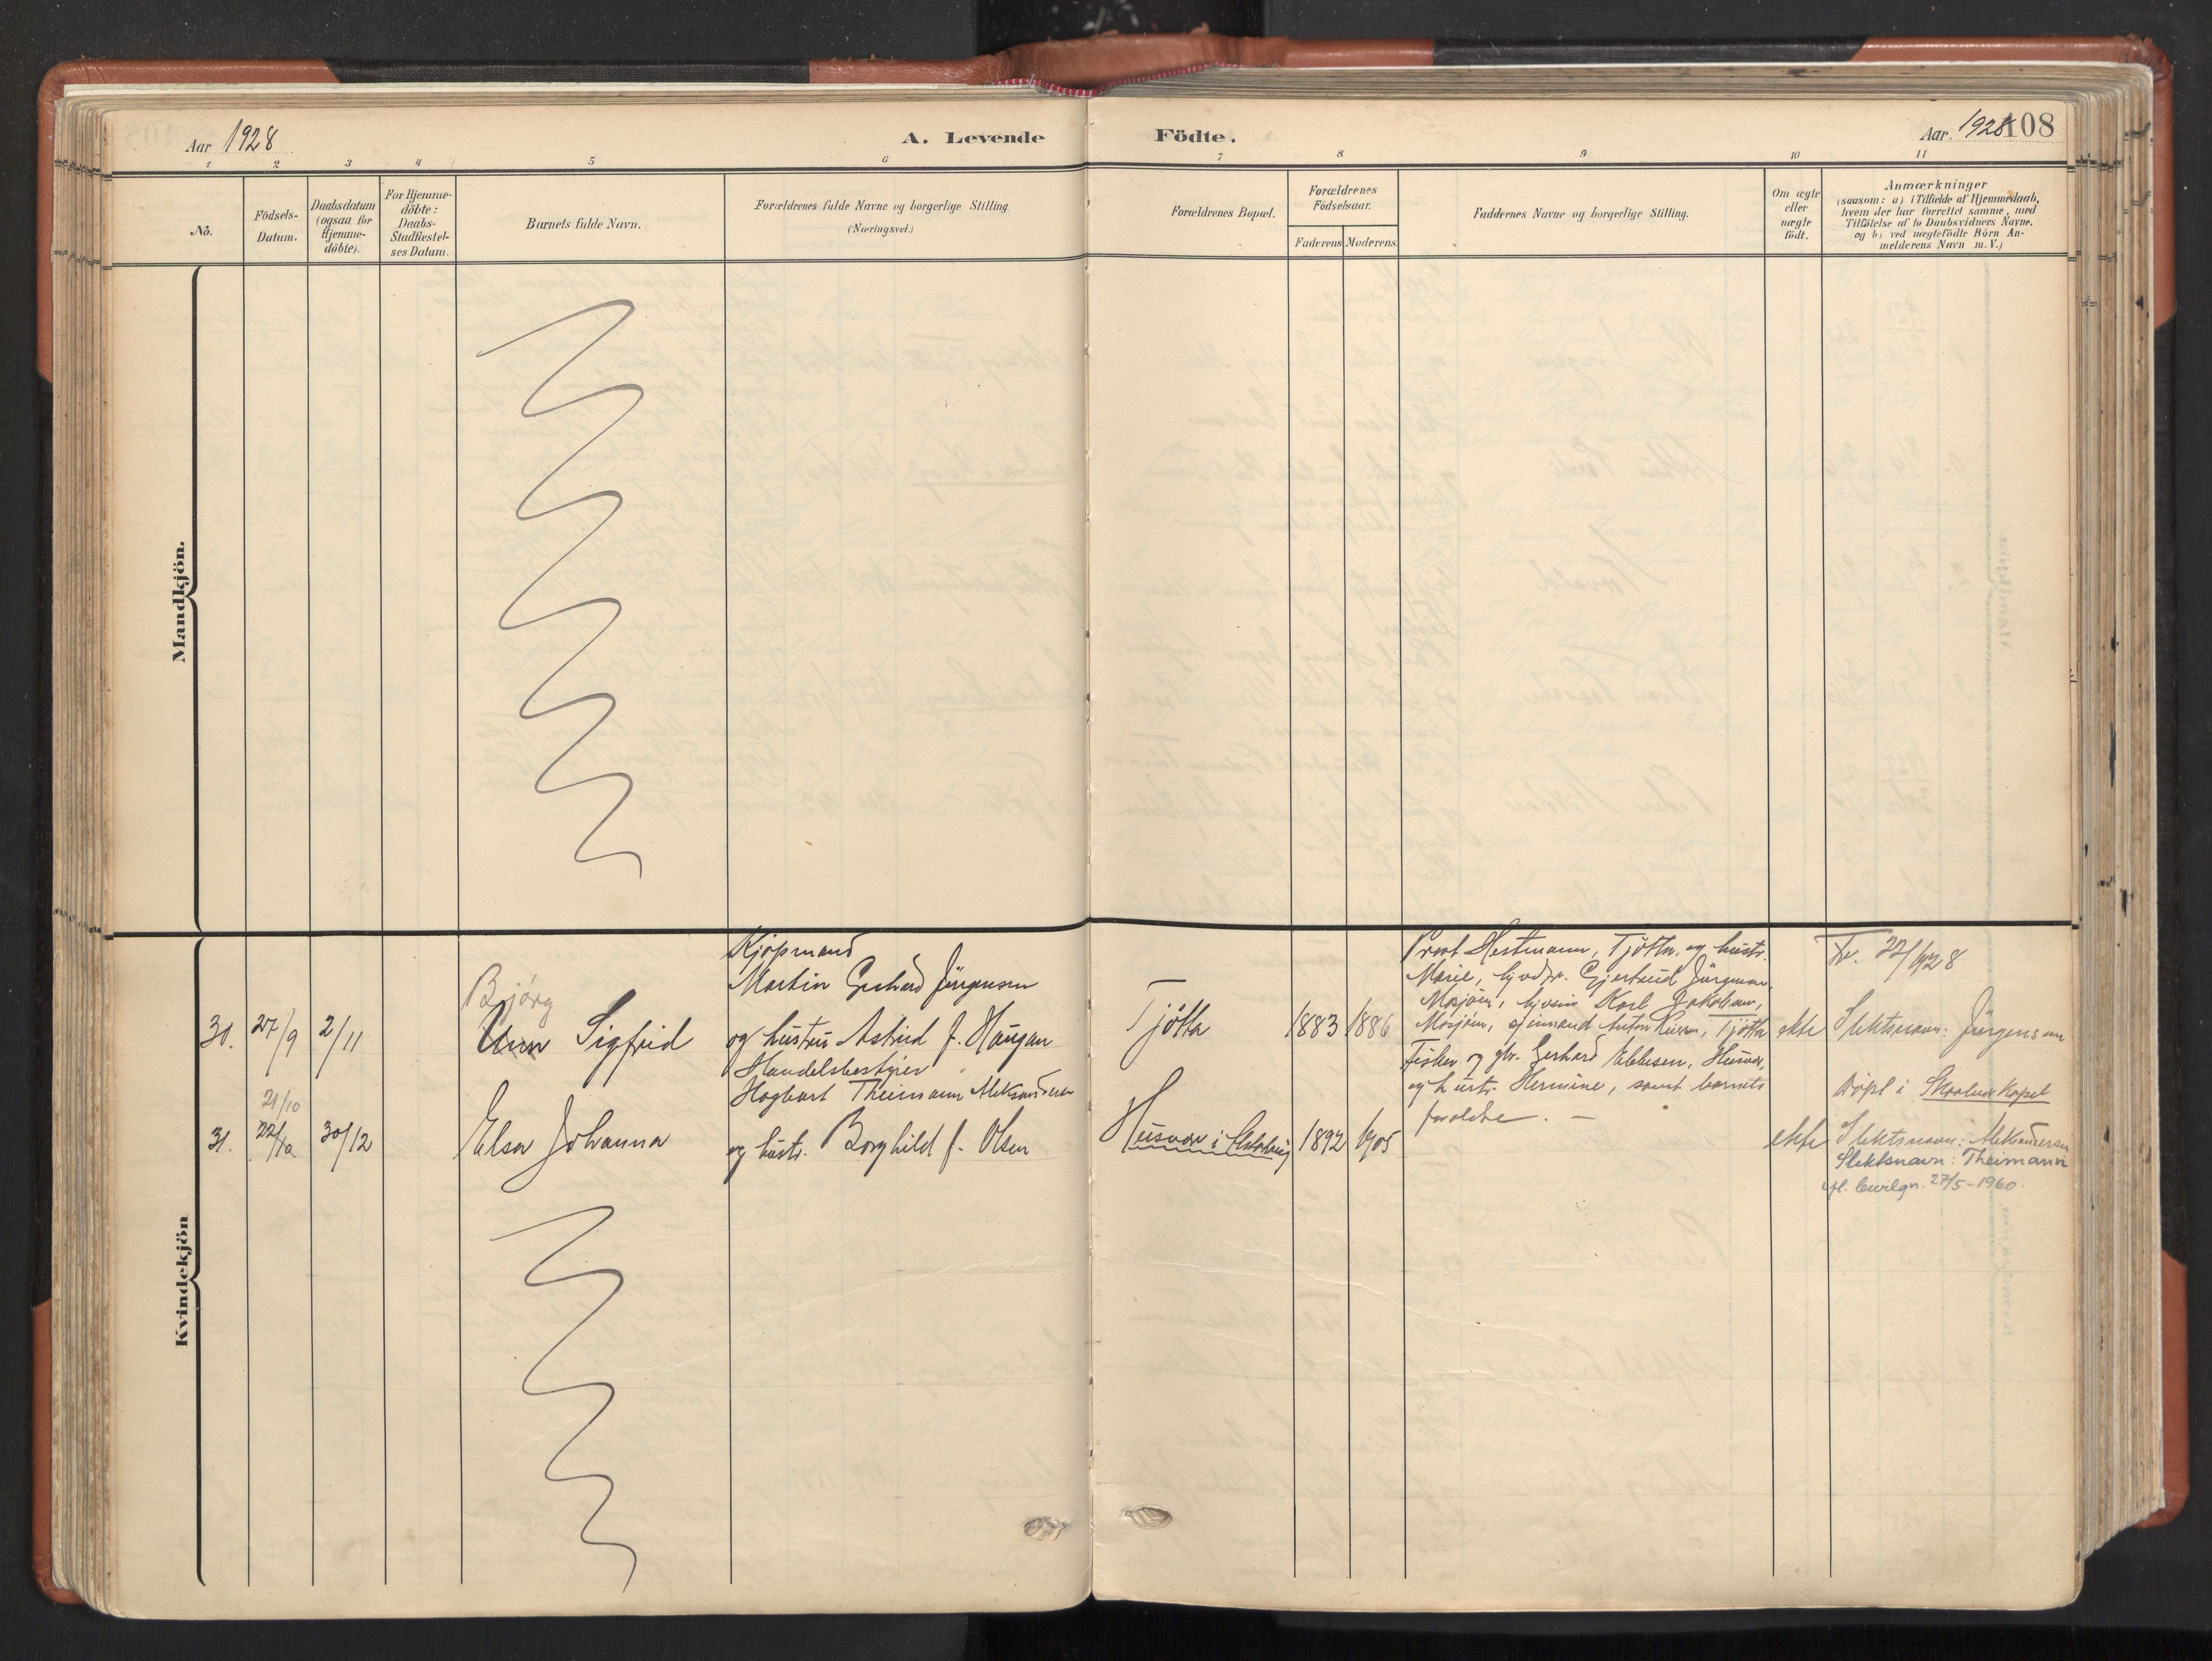 Aar 1928
A. Levende
Födte.
Aar. 1928
108
1 2 3 4 5 6 7 8 9 10 11
No.
Födsels-
Datum.
Daabsdatum
(ogsaa for
Hjemme-
döbte).
For Hjemme-
döbte:
Daabs-
Stadfæstel-
ses Datum.
Barnets fulde Navn.
Forældrenes fulde Navne og borgerlige Stilling
(Næringsvei.)
Forældrenes Bopæl.
Forældrenes
Födselsaar.
Faderens
Moderens
Faddernes Navne og borgerlige Stilling.
Om ægte
eller
uægte
födt.
Anmærkninger
(saasom: a) i Tilfælde af Hjemmedaab,
hvem der har forrettet samme, med
Tilföielse af to Daabsvidners Navne.
og b) ved uægtefödte Börn An-
melderens Navn m. V.)
Mandkjön.
Kvindekjön
30.
27/9
2/11
Bjórg
Unn Sigfrid
Kjøpmand
Martin Gerhard Jürgensen
og hustru Astrid f. Haugan
Tjötta
1883
1886
Prost Hestmann, Tjötta, og hustr.
Marie, Gjertrud Jürgensen,
Mosjöen, Karl Jakobsen,
Mosjöen, Anton, Tjötta
ekte
22/1928
Slektsnavn: Jürgensen
31.
21/10
22/10
30/12
Elsa Johanna
Handelsbestyrer
Hagbart Theimann Aleksandersen
og hustr. Borghild f. Olsen
Husvær i
1892
1905
Fisker og gbr. Gerhard Ebbesen, Husvær,
og hustr. Hermine, samt barnets
foreldre. —
ekte
Döpt i Skaalvær Kapel
Slektsnavn: Aleksandersen
Slektsnavn: Theimann
ifl. bevilgn. 27/5-1960.